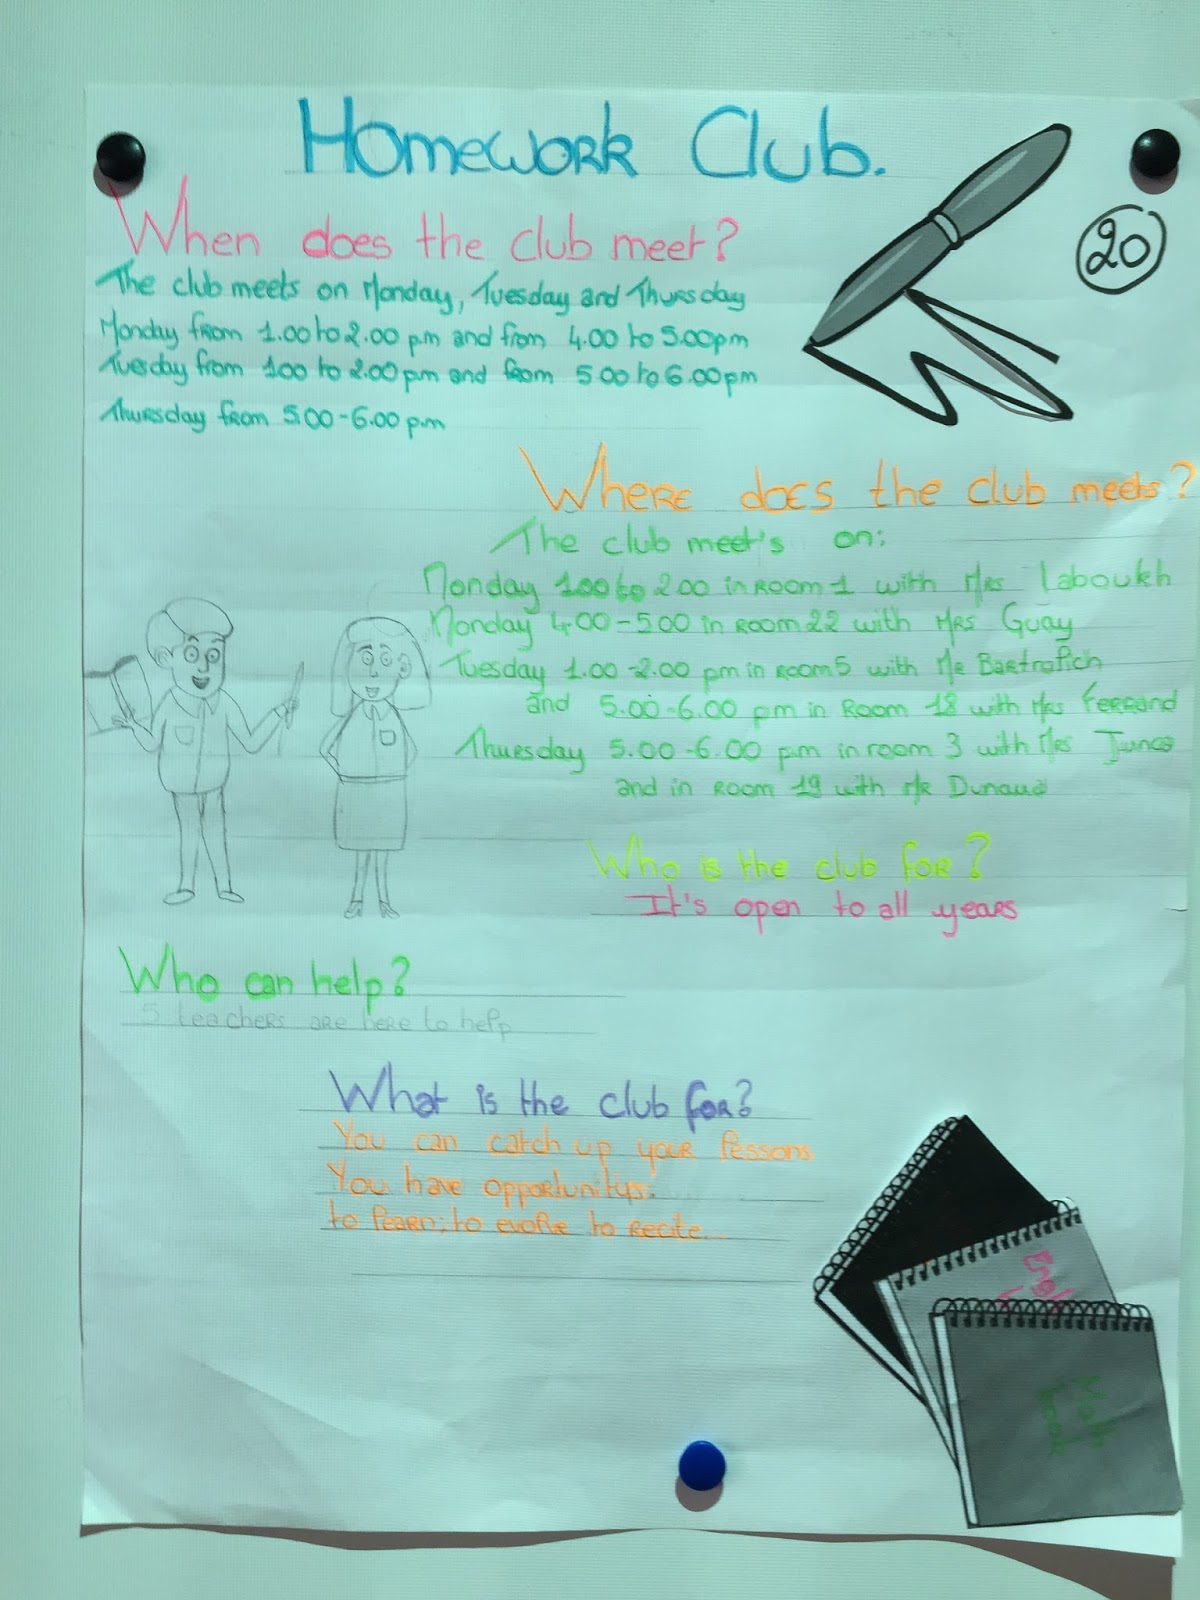 Homework Club.
20
When does the club meet?
The club meets on Monday, Tuesday and Thursday
Monday from 1.00 to 2.00 p.m and from 4.00 to 5.00pm
Tuesday from 1.00 to 2.00 pm and from 5.00 to 6.00 pm
Thursday from 5.00-6.00 p.m
Where does the club meets?
The club meet's on:
Monday 1.00 to 2.00 in room 1 with Mrs Laboukh
Monday 4.00-5.00 in room 22 with Mrs Guay
Tuesday 1.00-2.00 pm in room 5 with Mr
and 5.00-6.00 pm in Room 18 with Mrs Ferrand
Thuesday 5.00-6.00 pm in room 3 with Mrs
and in room 19 with Mr
Who is the club for?
It's open to all years
Who can help?
5 teachers are here to help
What is the club for?
You can catch up your lessons
You have opportunitys.
to learn; to evolve to recite...